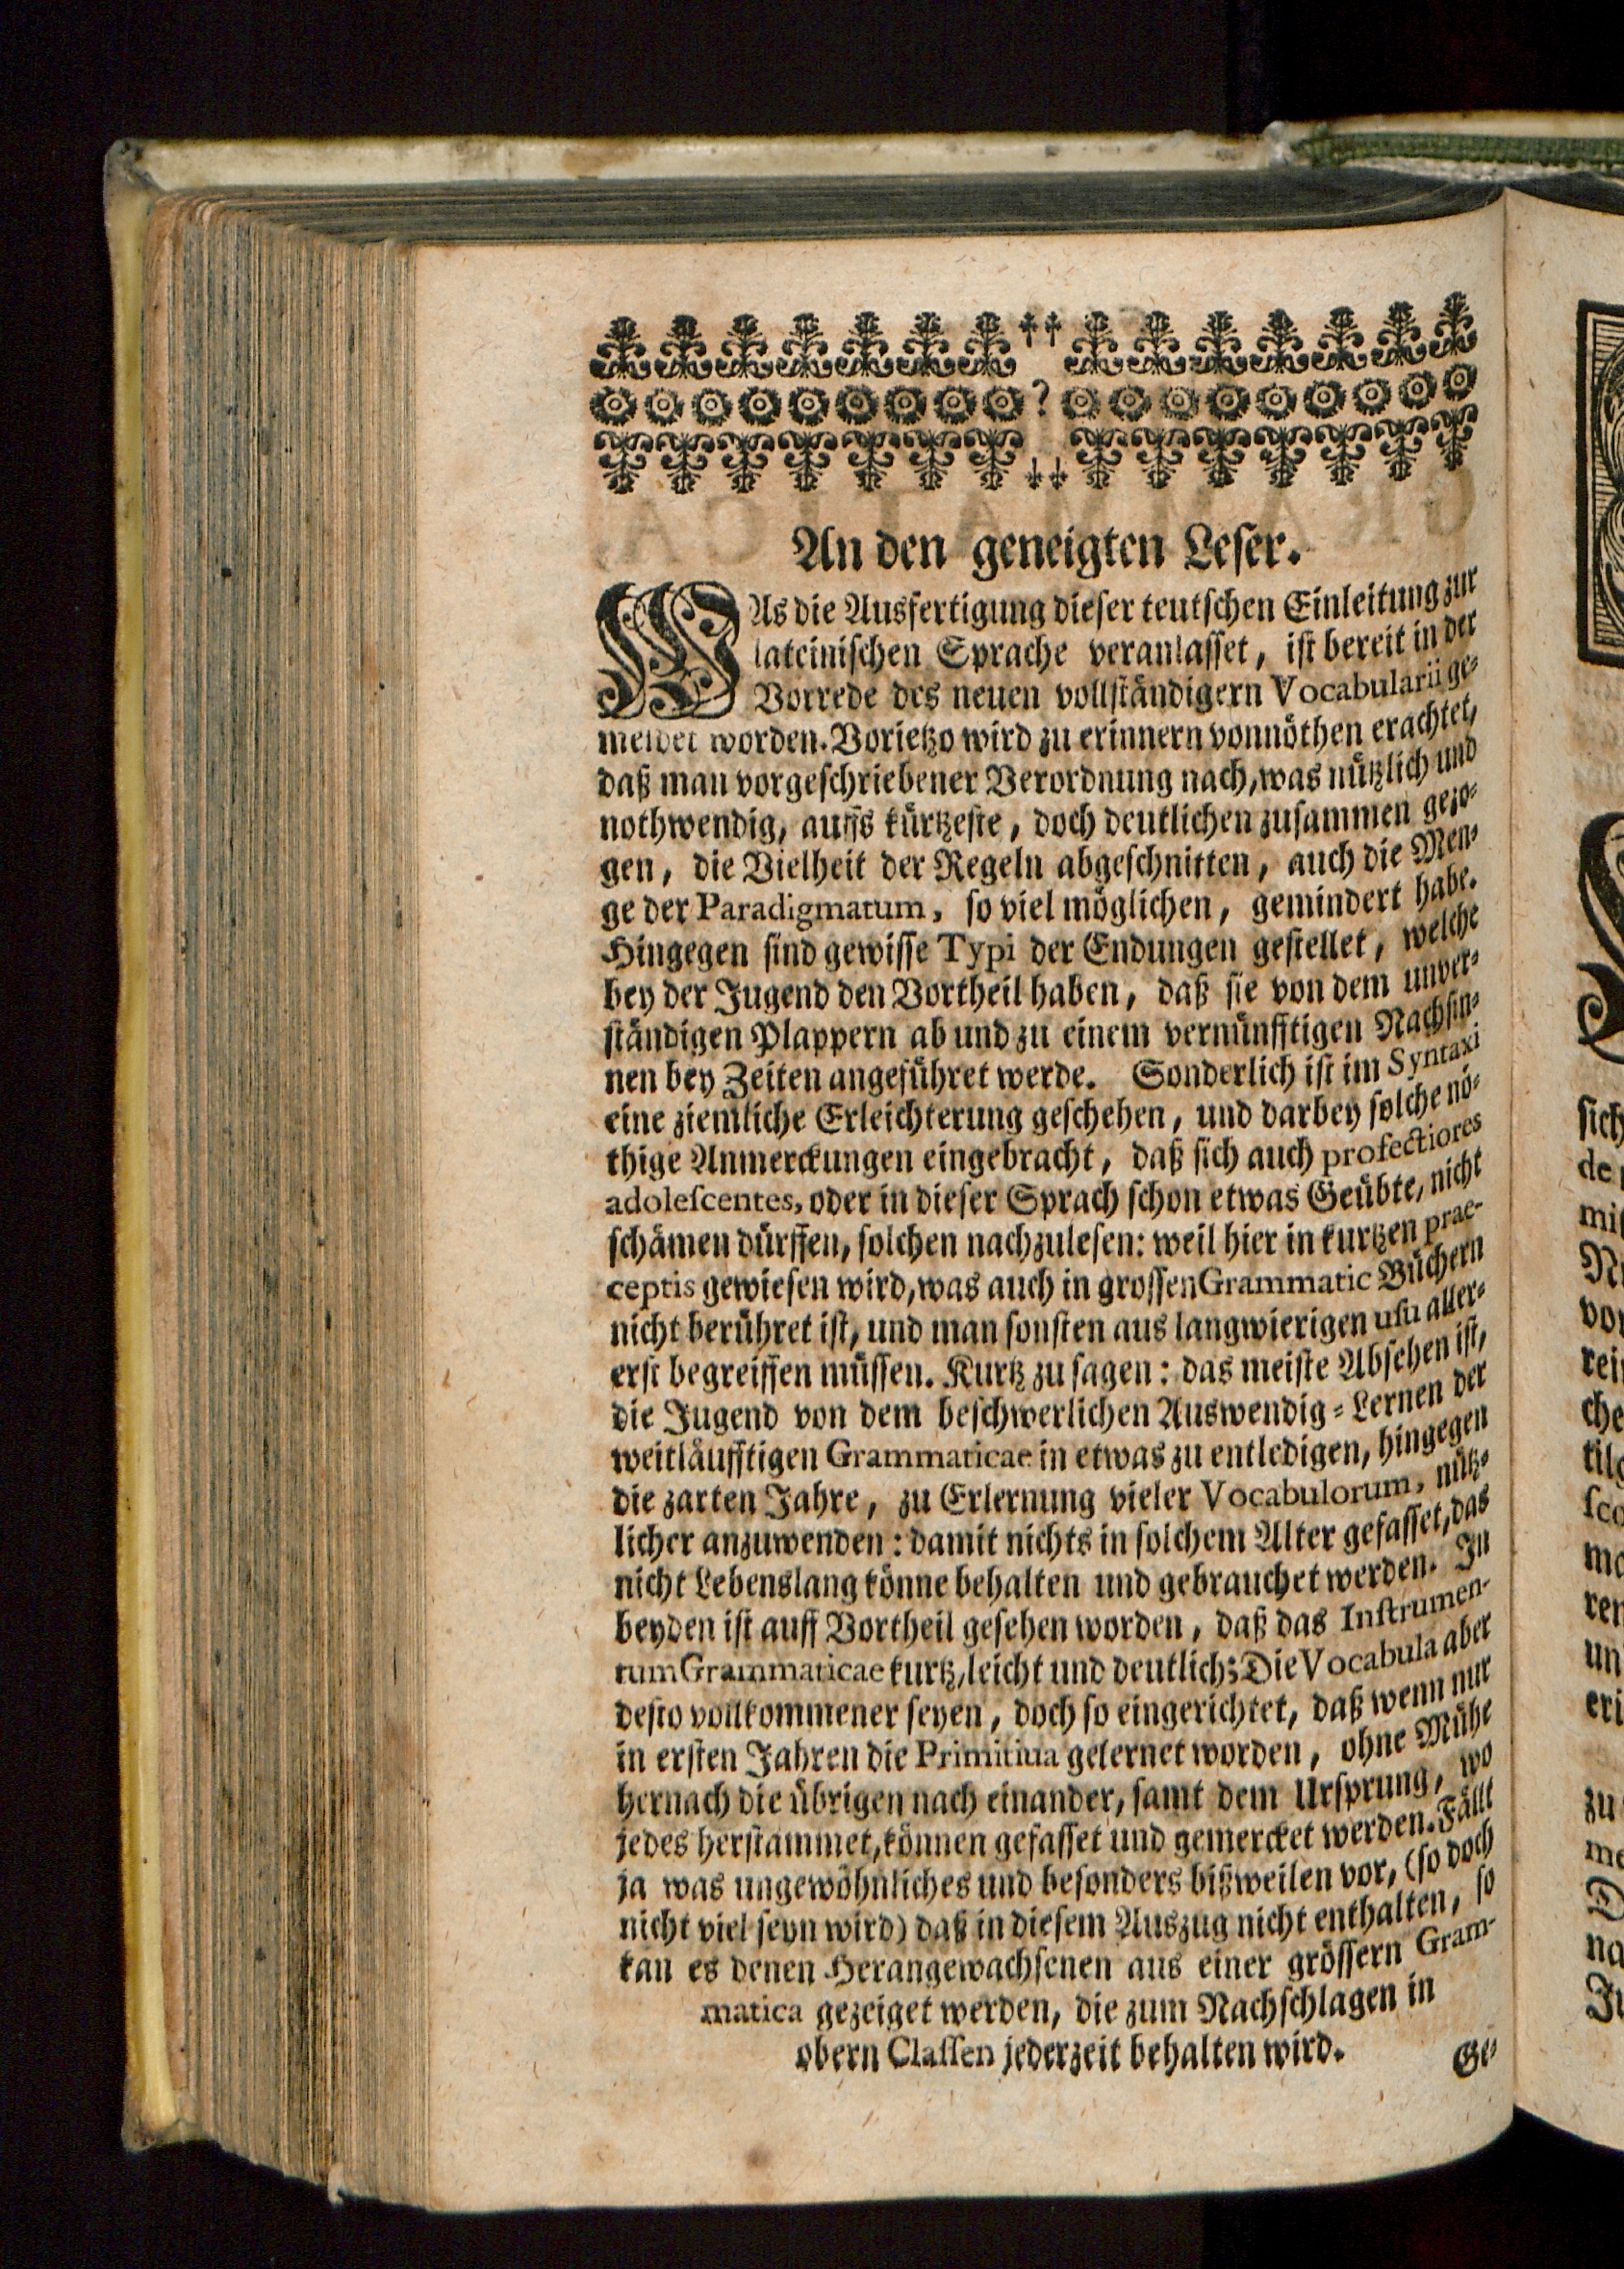 An den geneigten Leser.
WAs die Ausfertigung dieser teutschen Einleitung zur
lateinischen Sprache veranlasset, ist bereit in der
Vorrede des neuen vollständigern Vocabularii ge-
meldet worden. Vorietzo wird zu erinnern vonnöthen erachtet,
daß man vorgeschriebener Verordnung nach, was nützlich und
nothwendig, auffs kürtzeste, doch deutlichen zusammen gezo-
gen, die Vielheit der Regeln abgeschnitten, auch die Men-
ge der Paradigmatum, so viel möglichen, gemindert habe.
Hingegen sind gewisse Typi der Endungen gestellet, welche
bey der Jugend den Vortheil haben, daß sie von dem unver-
ständigen Plappern ab und zu einem vernünfftigen Nachsin-
nen bey Zeiten angeführet werde. Sonderlich ist im Syntaxi
eine ziemliche Erleichterung geschehen, und darbey solche nö-
thige Anmerckungen eingebracht, daß sich auch profectiores
adolescentes, oder in dieser Sprach schon etwas Geübte, nicht
schämen dürffen, solchen nachzulesen: weil hier in kurtzen prae-
ceptis gewiesen wird, was auch in grossen Grammatic Büchern
nicht berühret ist, und man sonsten aus langwierigen usu aller-
erst begreiffen müssen. Kurtz zu sagen: das meiste Absehen ist,
die Jugend von dem beschwerlichen Auswendig-Lernen der
weitläufftigen Grammaticae in etwas zu entledigen, hingegen
die zarten Jahre, zu Erlernung vieler Vocabulorum, nütz-
licher anzuwenden: damit nichts in solchem Alter gefasset, das
nicht Lebenslang könne behalten und gebrauchet werden. In
beyden ist auff Vortheil gesehen worden, daß das Instrumen-
tum Grammaticae kurtz, leicht und deutlich; Die Vocabula aber
desto vollkommener seyen, doch so eingerichtet, daß wenn nur
in ersten Jahren die Primitiua gelernet worden, ohne Mühe
hernach die übrigen nach einander, samt dem Ursprung, wo
jedes herstammet, können gefasset und gemercket werden. Fällt
ja was ungewöhnliches und besonders bißweilen vor, (so doch
nicht viel seyn wird) daß in diesem Auszug nicht enthalten, so
kan es denen Herangewachsenen aus einer grössern Gram-
matica gezeiget werden, die zum Nachschlagen in
obern Classen jederzeit behalten wird.
Ge-